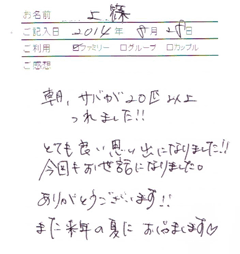 お名前 上篠
ご記入日 2014年8月28日
ご利用 ☑ファミリー □グループ □カップル
ご感想
朝、サバが20匹以上
つれました!!
とても良い思い出になりました!!
今回もお世話になりました。
ありがとうございます!!
また来年の夏に おじゃまします♡